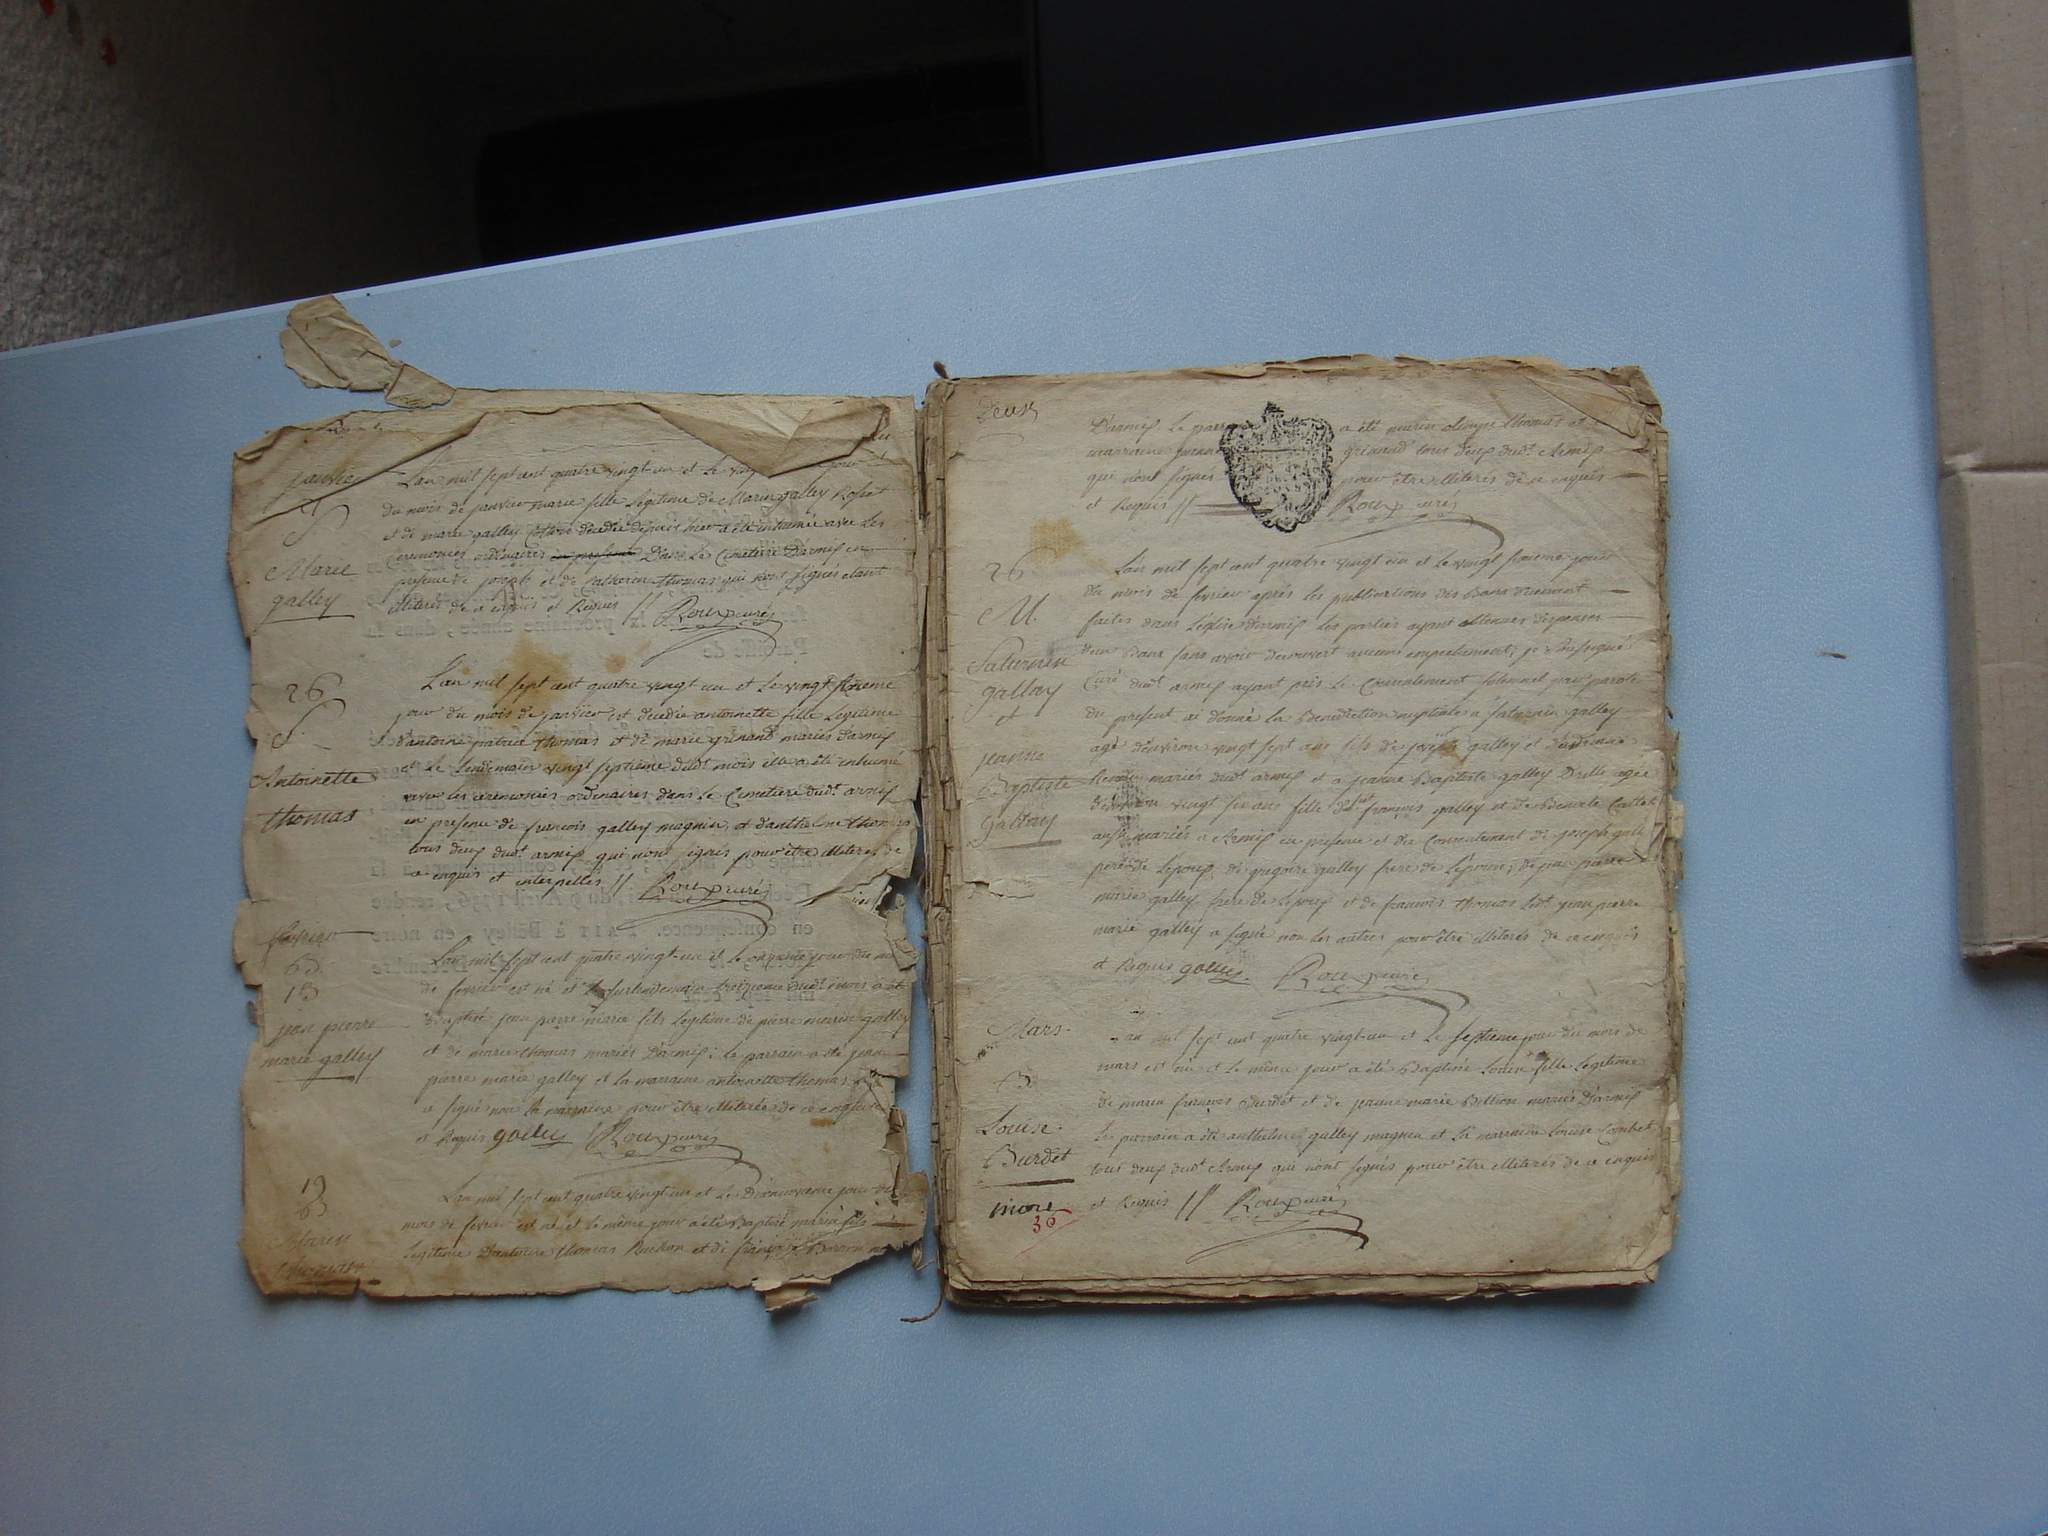 janvier
L'an mil sept cent quatre vingt-un et le vingt
du mois de janvier marie fille legitime de Marin galley
et de marie galley decedée depuis hier a été inhumée avec les
Ceremonies ordinaires Dans le Cimetiere D'armix en
presence de joseph et de Catherin thomas qui n'ont signés etant
illiterés de ce enquis et Requis // Roux curé
S
Marie
galley
26
S
Antoinette
thomas
L'an mil sept cent quatre vingt un et le vingt sixieme
jour du mois de janvier est decedée antoinette fille Legitime
d'antoine patrice thomas et de marie grinand mariés d'armix
et le Lendemain vingt septieme dudt mois elle a été inhumée
avec les ceremonies ordinaires dans le Cimetiere dudt armix
en presence de francois galley magnin et d'anthelme thomas
tous deux dudt armix qui n'ont signés pour être illiterés de
ce enquis et interpellés // Roux curé
fevrier
B
13
jean pierre
marie galley
L'an mil sept cent quatre vingt-un et le onzieme jour du mois
de fevrier est né et le surlendemain treizieme dudt mois a été
Baptisé jean pierre marie fils legitime de pierre marin galley
et de marie thomas mariés D'armix; le parrain a été jean
pierre marie galley et la marraine antoinette thomas
a signé non la marraine pour être illiterée de ce enquise
et Requise galley Roux curé
19
B
Marin
thomas
L'an mil sept cent quatre vingt-un et le Dixneuvieme jour du
mois de fevrier est né et le même jour a été Baptisé marin fils
legitime D'antoine thomas et de françoise
Deux
D'armix Le parrain a été marin olimpe thomas et
marraine grinand tous deux dudt Armix
qui n'ont signés pour être illiterés de ce enquis
et Requis // Roux curé
26
M.
Saturnin
gallay
et
jeanne
Baptiste
gallay
L'an mil sept cent quatre vingt un et le vingt sixieme jour
du mois de fevrier après les publications des Bans duement
faites dans l'église d'armix les parties ayant obtenues dispenses
deux Bans sans avoir decouvert aucuns empechement, je soussigné
Curé dudt armix ayant pris le Consentement solemnel par parole
du present ai donné la Benediction nuptiale a saturnin galley
agé d'environ vingt sept ans fils de joseph galley et
mariés dudt armix et a jeanne Baptiste galley Drille agée
d'environ vingt six ans fille de françois galley et de Benoite
aussi mariés a Armix en presence et du Consentement de joseph galley
pere de l'epoux, de gregoire galley frere de l'epoux, de jean pierre
marie galley frere de l'epoux et de francois thomas ledt jean pierre
marie galley a signé non les autres pour être illiterés de ce enquis
et Requis galley Roux curé
Mars
B
Louise
Burdet
L'an mil sept cent quatre vingt-un et le septieme jour du mois de
mars est née et le même jour a été Baptisée Louise fille Legitime
de marin francois Burdet et de jeanne marie Billion mariés D'armix
Le parrain a été anthelme galley magnin et la marraine Louise Combet
tous deux dudt Armix qui n'ont signés pour être illiterés de ce enquis
et Requis // Roux curé
more
36